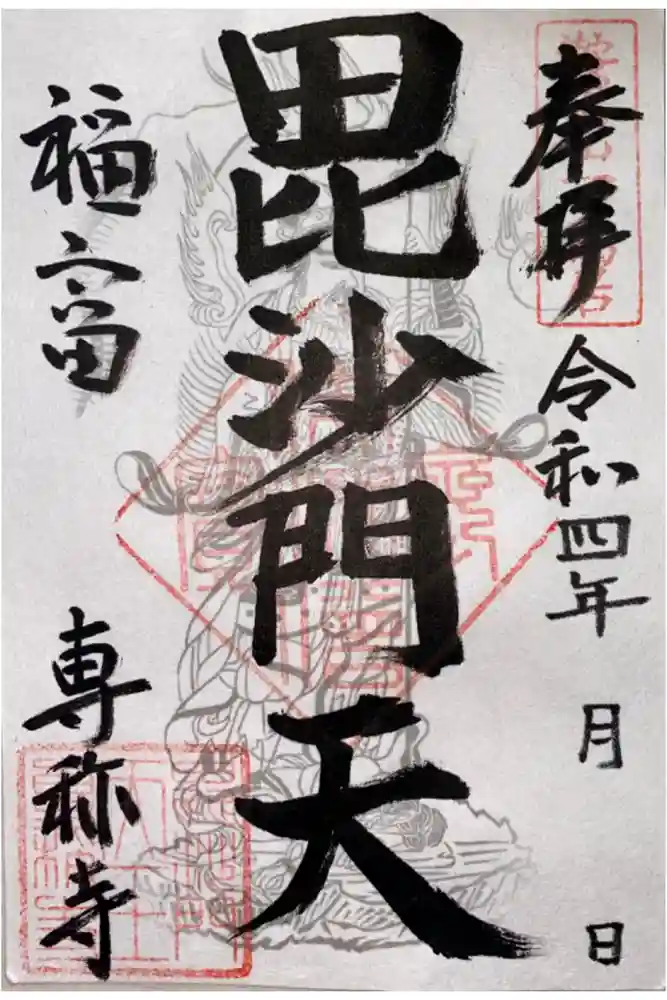 奉拝
令和四年 月 日
毘沙門天
福富
専称寺